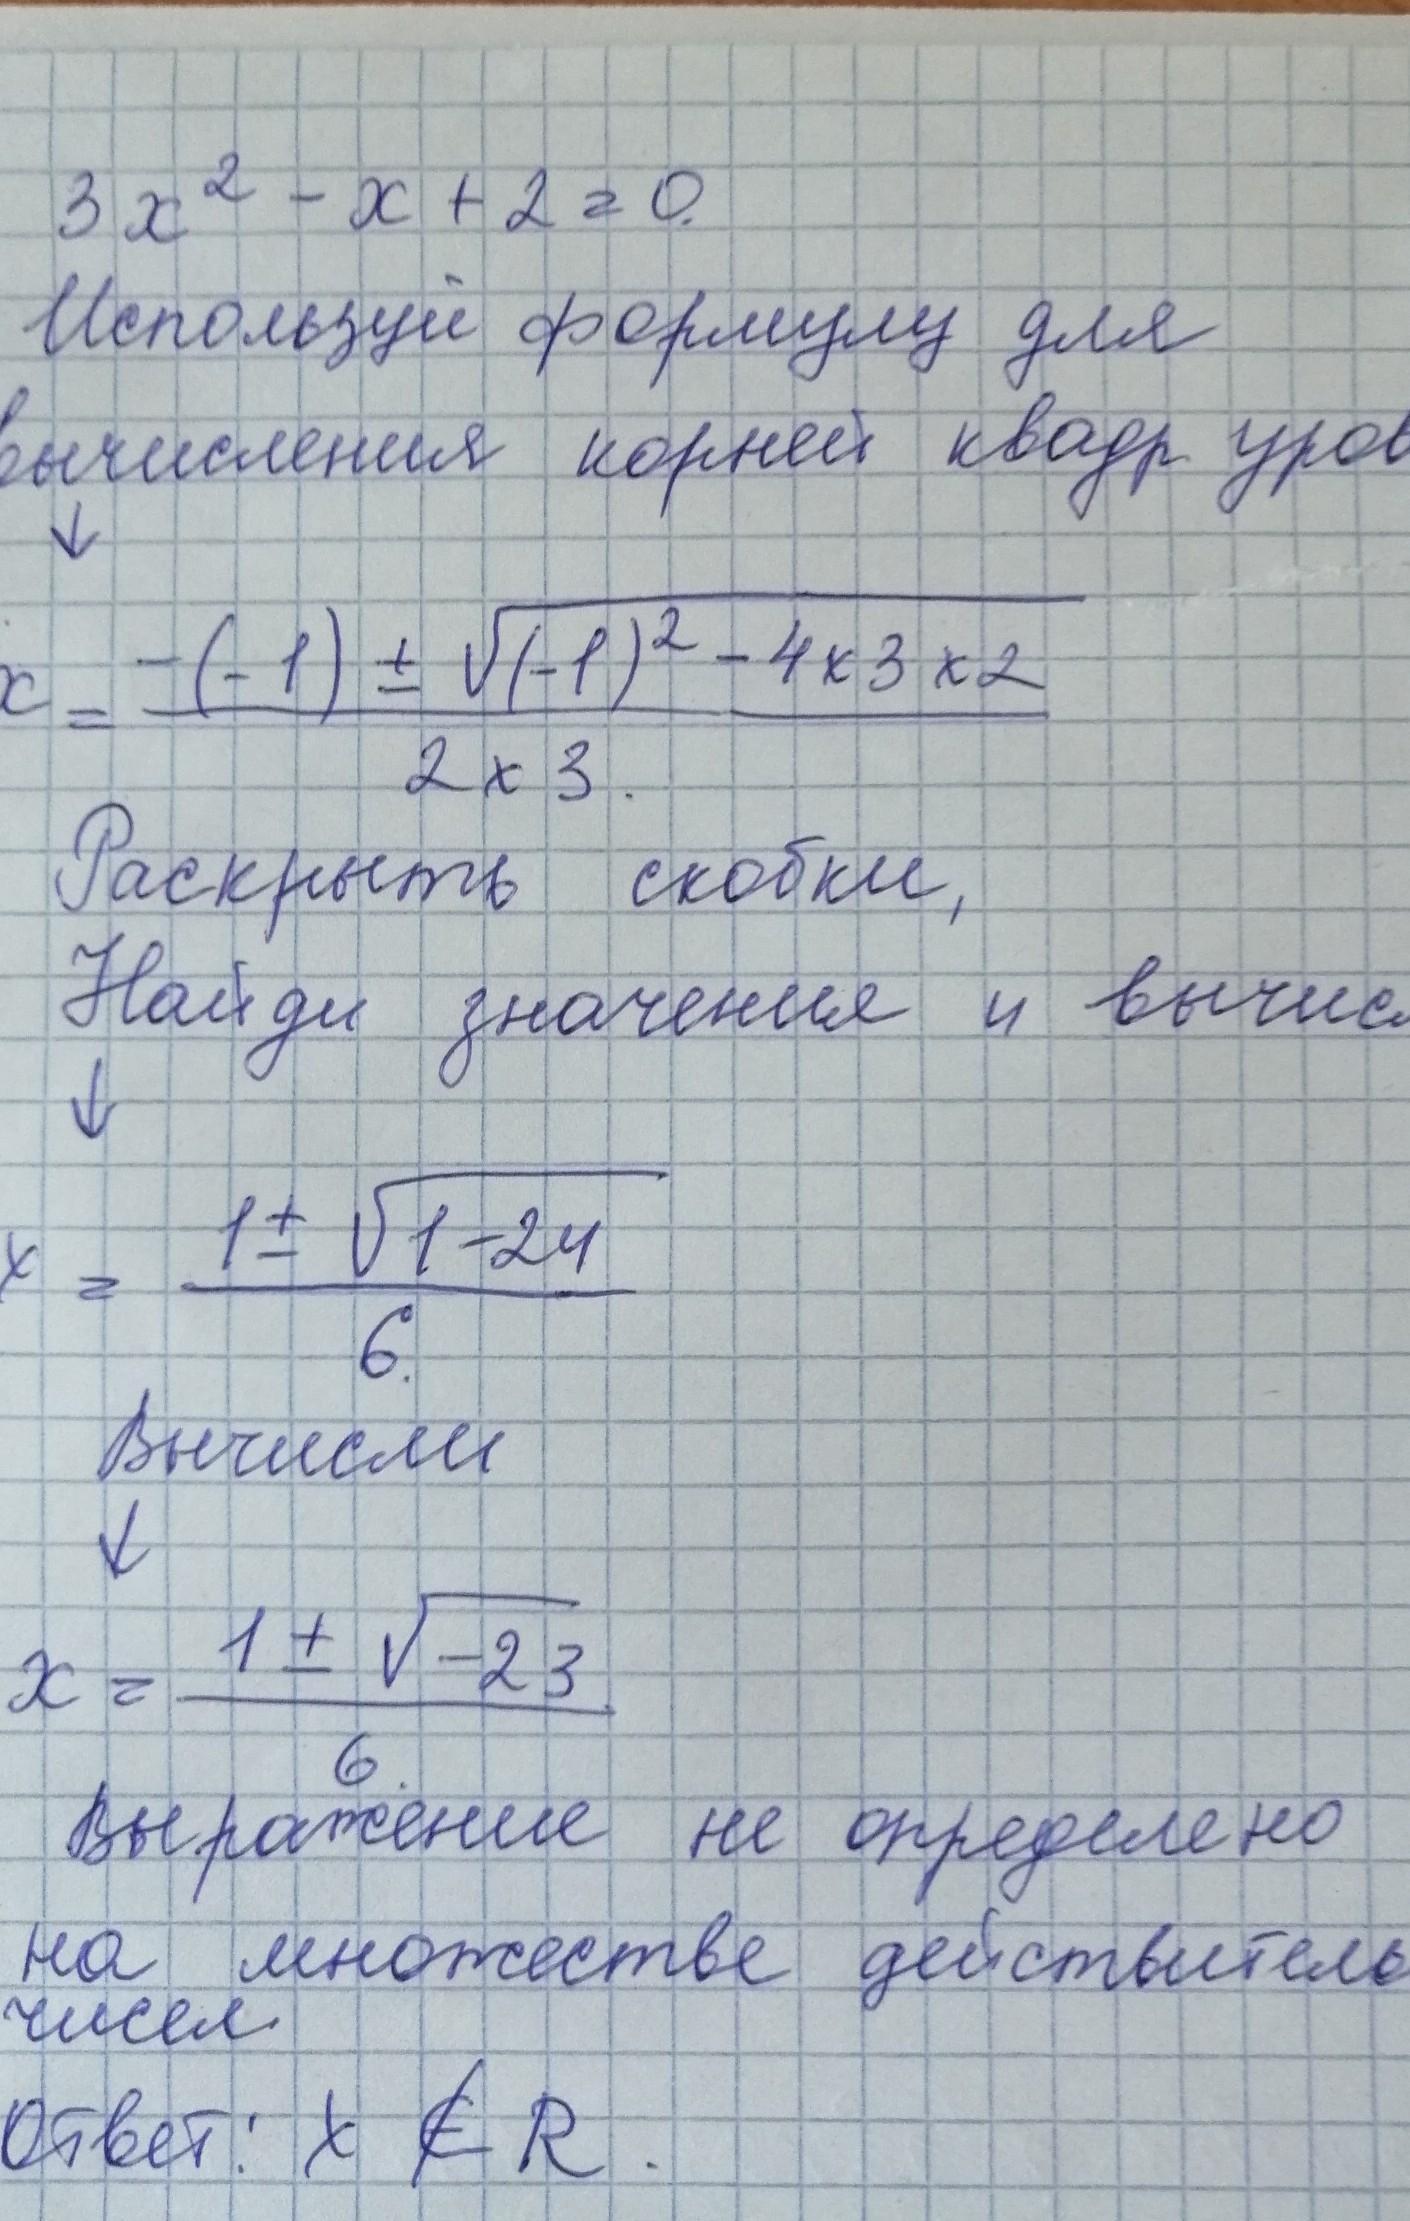 3x² - x + 2 = 0.
Используй формулу для
вычисления корней квадр уров
↓
x = (-(-1) ± √((-1)² - 4x3x2)) / (2x3).
Раскрыть скобки,
Найди значения и вычисл
↓
x = (1 ± √(1-24)) / 6.
Вычисли
↓
x = (1 ± √(-23)) / 6.
Выражение не определено
на множестве действитель
чисел.
Ответ: x ∉ R.